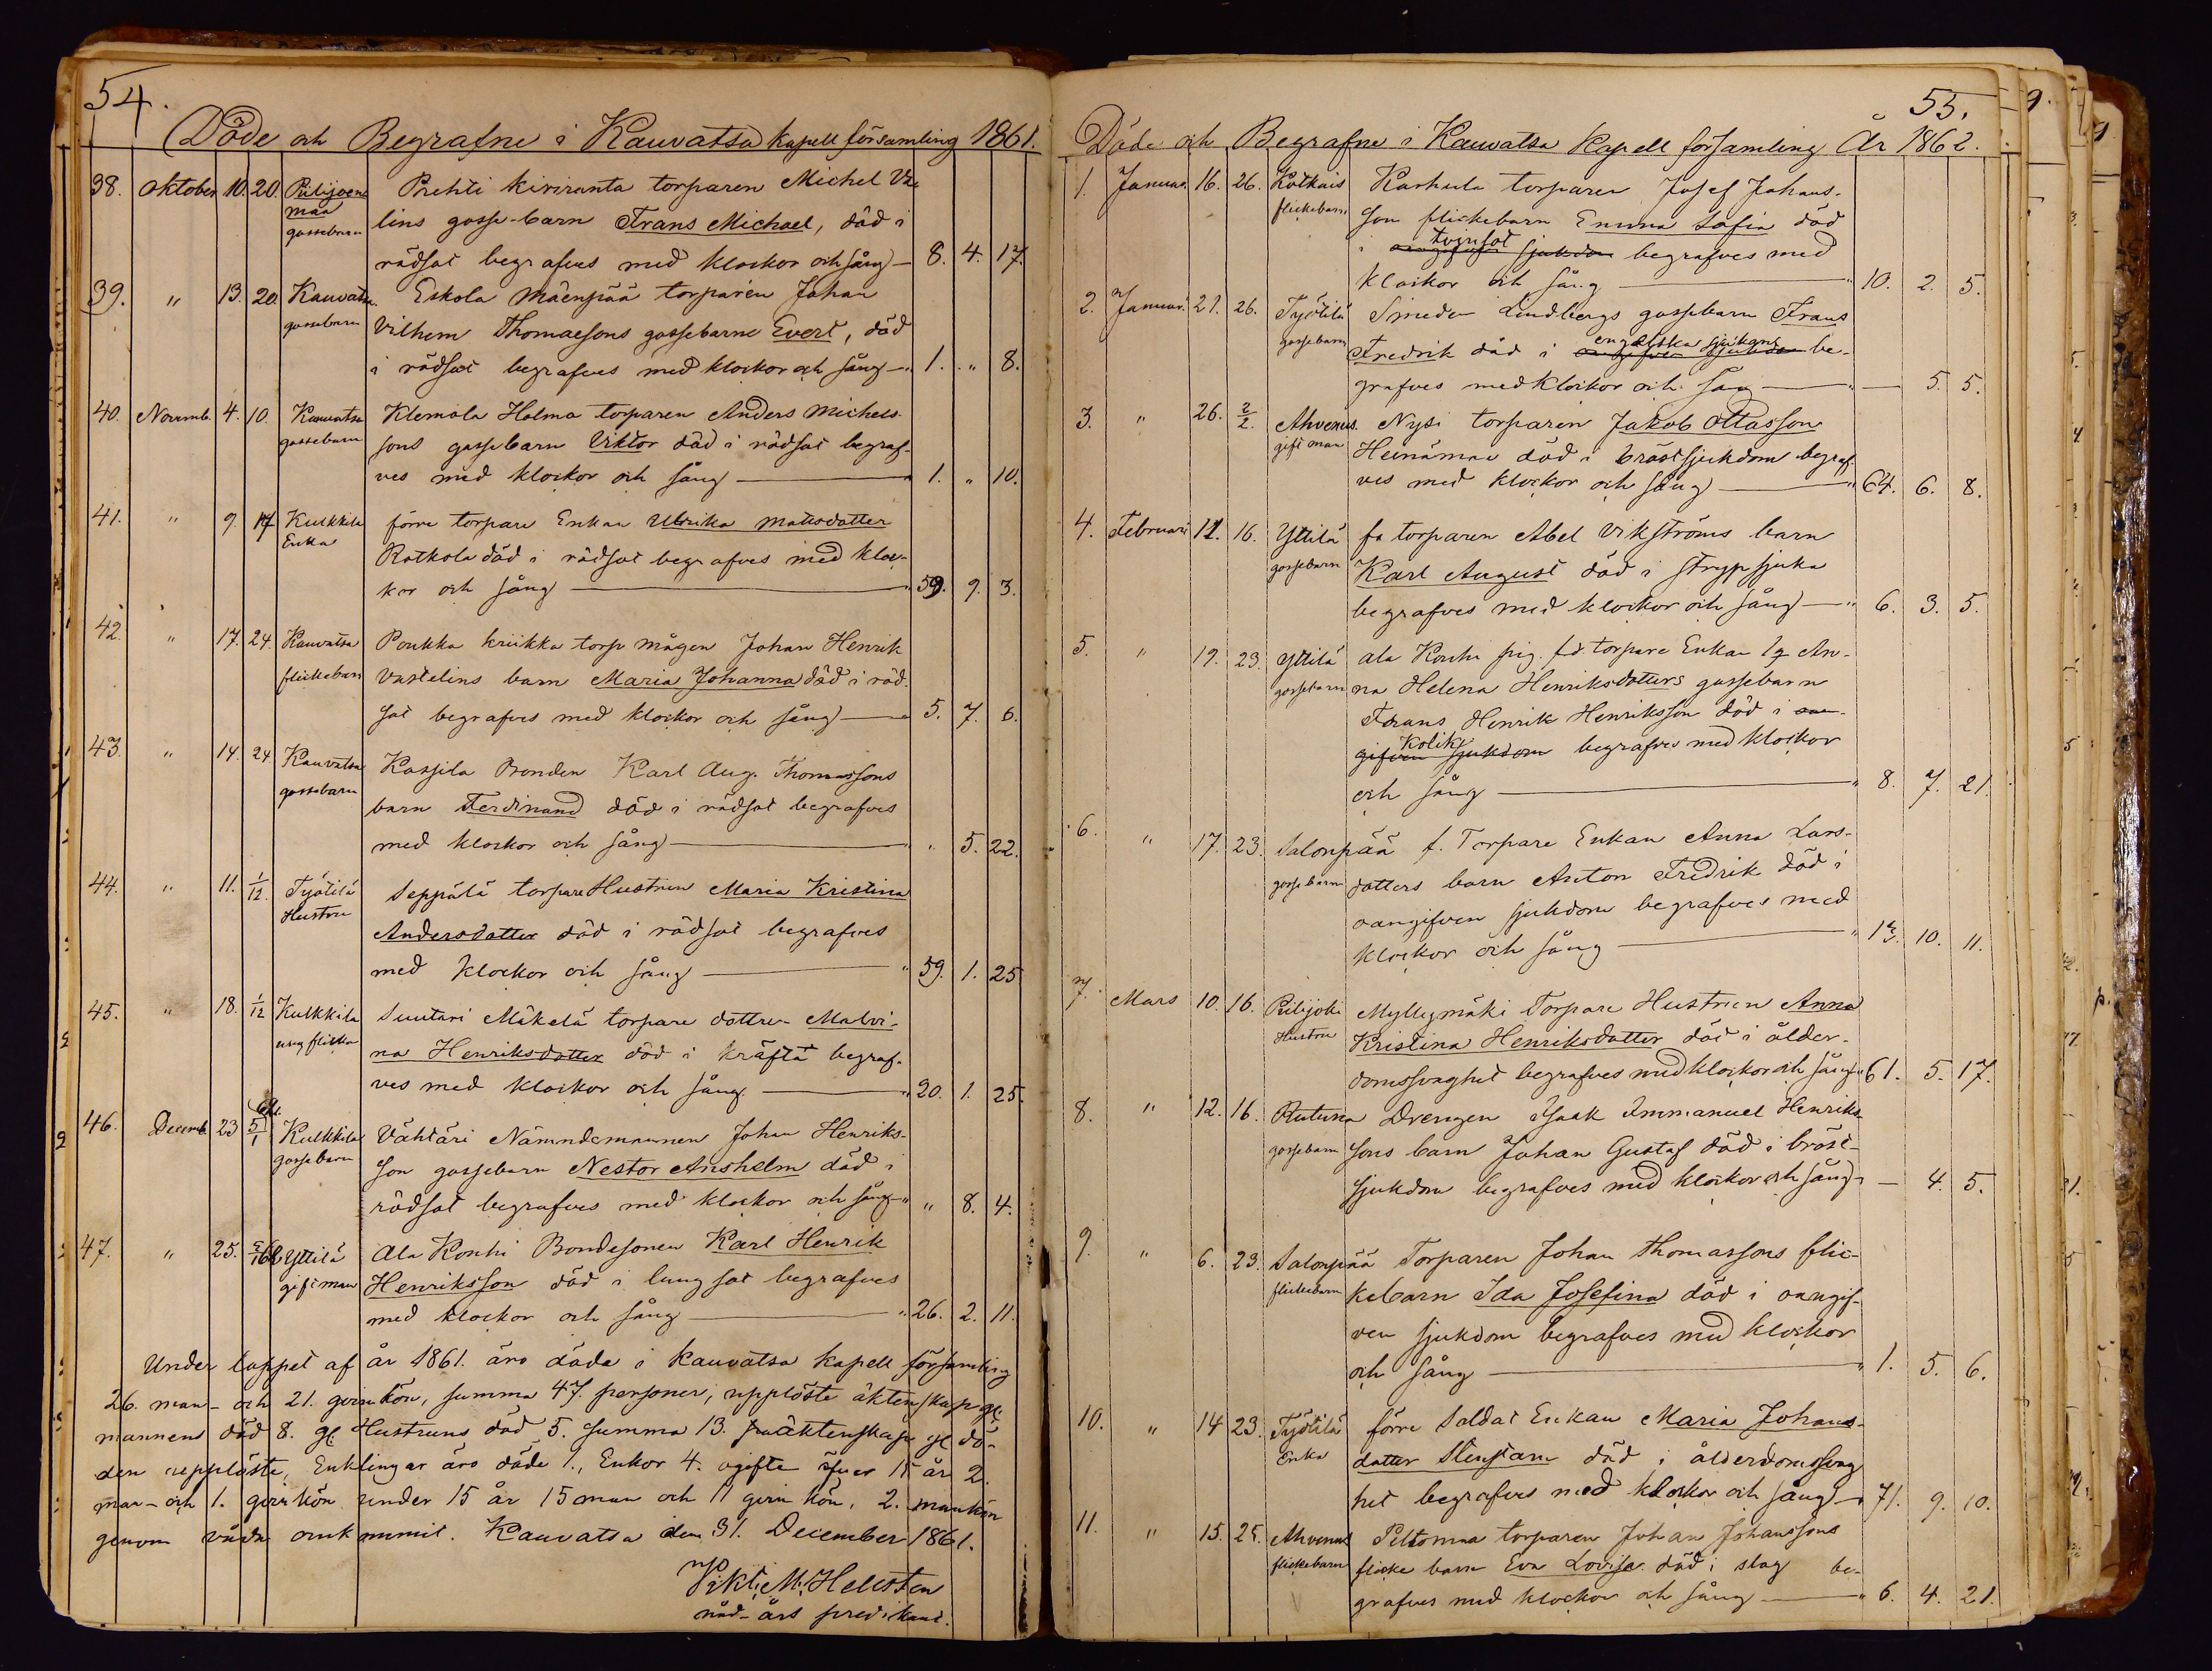 54.
Döde och Begrafne i Kauvatsa kapell församling 1861.
38. Oktober 10. 20. Piilijoensmaa gossebarn Prehti kiviranta torparen Michel Va-
lins gosse-barn Frans Michael, död i
rödsot begrafves med klockor och sång — 8. 4. 17.
39. " 13. 20. Kauvatsa gossebarn Eskola Mäenpää torparen Johan
Vilhem Thomaesons gossebarne Evert, död
i rödsot begrafves med klockor och sång — 1. " 8.
40. Novemb. 4. 10. Kauvatsa gossebarn Klemola Holma torparen Anders Michels-
sons gossebarn Viktor död i rödsot begraf-
ves med klockor och sång — 1. " 10.
41. " 9. 17 Kulkkila Enka förre torpare Enkan Ulrika Matsdotter
Rotkola död i rödsot begrafves med kloc-
kor och sång — 59. 9. 3.
42. " 17. 24. Kauvatsa flickebarn Poukka kriikka torp mågen Johan Henrik
Vastelins barn Maria Johanna död i röd-
sot begrafves med klockor och sång — 5. 7. 6.
43. " 14. 24 Kauvatsa gossebarn Kassila Bonden Karl Aug. Thomassons
barn Ferdinand död i rödsot begrafves
med klockor och sång — " 5. 22.
44. " 11. 1/12. Työtilä Hustru Seppälä torpare Hustrun Maria Kristina
Andersdotter död i rödsot begrafves
med klockor och sång — " 59. 1. 25
45. " 18. 1/12 Kulkkila ung flicka Suutari Mäkelä torpare dottren Malvi-
na Henriksdotter död i kräfta begraf-
ves med klockor och sång. — " 20. 1. 25.
46. Decemb. 23 5/1 62. Kulkkila gossebarn Vähtäri Nämndemannen Johan Henriks-
son gossebarn Nestor Anshelm död i
rödsot begrafves med klockor och sång — " 8. 4.
47. " 25. 5/1 62 Yttilä gift man Ala Konhi Bondesonen Karl Henrik
Henriksson död i lungsot begrafves
med klockor och sång — " 26. 2. 11.
Under loppet af år 1861. äro döde i Kauvatsa kapell församling
26. man- och 21. qvinkön, summa 47. personer, upplöste äktenskap gl.
mannens död 8. gl. Hustruns död 5. summa 13. äktenskap gl dö-
den upplöste, Enklingar äro döde 1., Enkor 4. ogifte öfver 15 år 2.
man- och 1. qvinkön under 15 år 15 man och 11 qvin kön, 2. mankön
genom våda omkommit. Kauvatsa den 31. December 1861.
Vikt. M. Hellsten
nåd-års predikant.
55.
Döde och Begrafne i Kauvatsa Kapell församling År 1862.
1. Januar. 16. 26. flickebarn Karhula torparen Josef Johans-
son flickebarn Emma Sofia död
i oangifven sjukdom tvinsot begrafves med
klockor och sång — " 10. 2. 5.
2. Januar. 21. 26. Työtilä gossebarn Smeden Lindbergs gossebarn Frans
Fredrik död i oangifven sjukdom engelska sjukan be-
grafves med klockor och sång — " — 5. 5.
3. " 26. 2/2. Ahvenus. gift man Nysi torparen Jakob Ottasson
Heinämaa död i bröstsjukdom begraf-
ves med klockor och sång — " 64. 6. 8.
4. Februari 11. 16. Yttilä gossebarn fa torparen Abel Vikströms barn
Karl August död i strypsjuka
begrafves med klockor och sång — " 6. 3. 5.
5. " 19. 23. Yttilä gossebarn ala Konhi pig. f.d. torpare Enkan An-
na Helena Henriksdotters gossebarn
Frans Henrik Henriksson död i oan-
gifven sjukdom Kolik begrafves med klockor
och sång — " 8. 7. 21.
6. " 17. 23. Salonpää gossebarn f. Torpare Enkan Anna Lars-
dotters barn Anton Fredrik död i
oangifven sjukdom begrafves med
klockor och sång — " 10. 11.
7. Mars 10. 16. Piilijoki Hustru Myllymäki Torpare Hustrun Anna
Kristina Henriksdotter död i ålder-
domssvaghet begrafves med klockor och sång " 61. 5. 17.
8. " 12. 16. Rutuna gossebarn Drengen Isaak Immanuel Henriks
sons barn Johan Gustaf död i bröst-
sjukdom begrafves med klockor och sång — 4. 5.
9. " 6. 23. Salonpää flickebarn Torparen Johan Thomassons flic-
kebarn Ida Josefina död i oangif-
ven sjukdom begrafves med klockor
och sång — " 1. 5. 6.
10. " 14 23. Työtilä Enka förre Soldat Enkan Maria Johans-
dotter Stenstam död i ålderdomssvag
het begrafves med klockor och sång — 71. 9. 10.
11. " 15. 25. Ahvenus flickebarn Peltomaa torparen Johan Johanssons
flicke barn Eva Lovisa död i slag be-
grafves med klockor och sång — " 6. 4. 21.